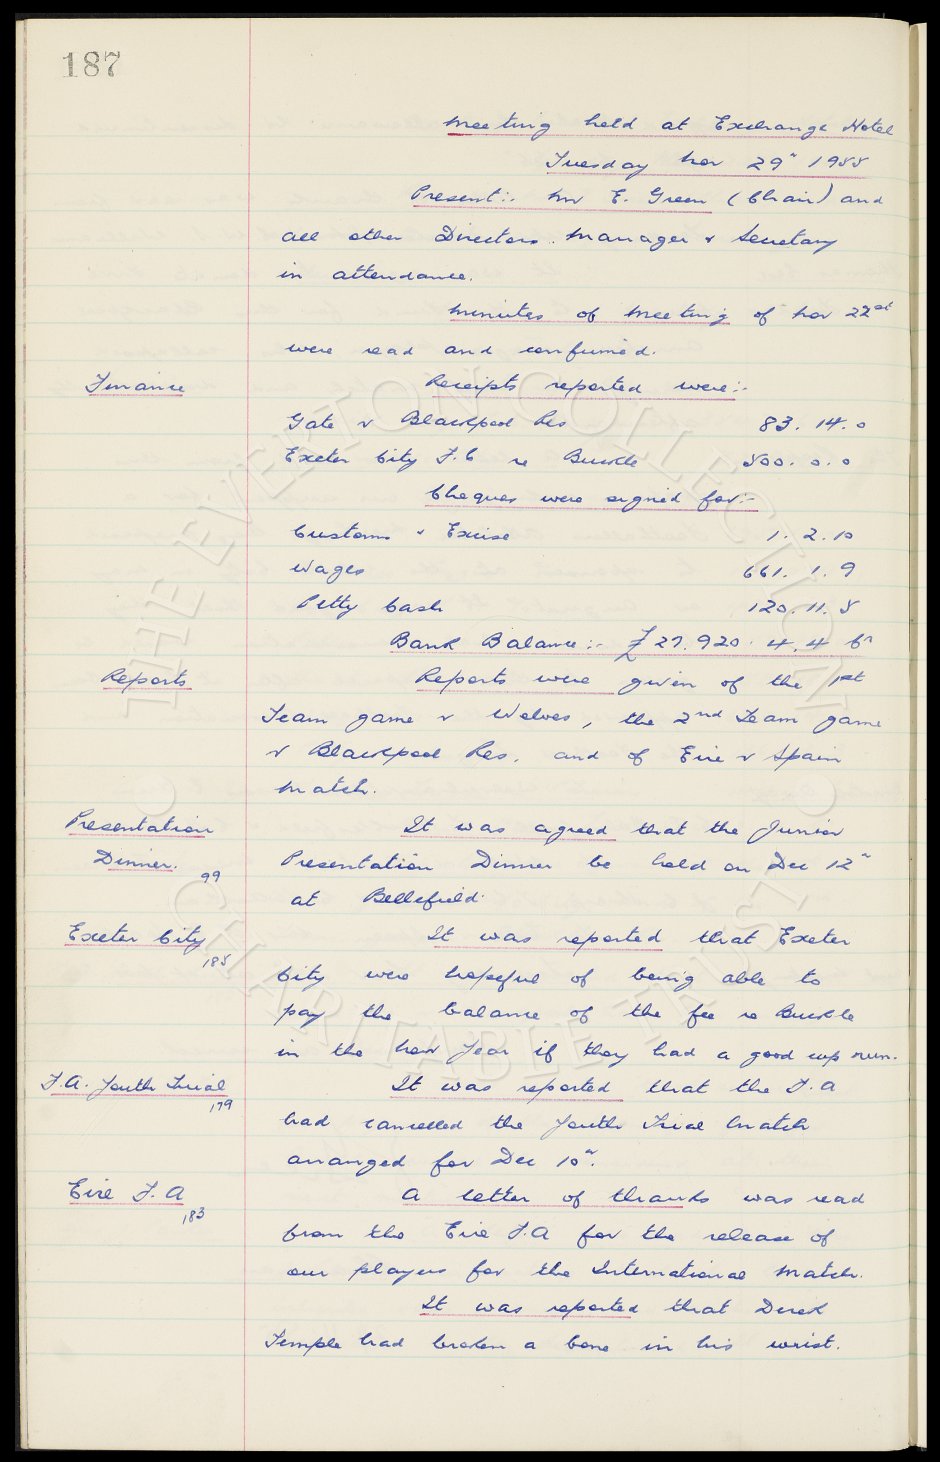 187
Meeting held at Exchange Hotel
Tuesday Nov 29" 1955
Present:- Mr E. Green (Chair) and
all other Directors. Manager & Secretary
in attendance.
Minutes of Meeting of Nov 22nd
were read and confirmed.
Finance
Receipts reported were:-
Gate v Blackpool Res 83. 14. 0
Exeter City F.C re Buckle 500. 0. 0
Cheques were signed for:-
Customs & Excise 1. 2. 10
Wages 661. 1. 9
Petty Cash 120. 11. 5
Bank Balance:- £27.920. 4. 4 Cr
Reports
Reports were given of the 1st
Team game v Wolves, the 2nd Team game
v Blackpool Res. and of Eire v Spain
match.
Presentation
Dinner. 99
It was agreed that the Junior
Presentation Dinner be held on Dec 12"
at Bellefield.
Exeter City
185
It was reported that Exeter
City were hopeful of being able to
pay the balance of the fee re Buckle
in the New Year if they had a good cup run.
F.A. Youth Trial
179
It was reported that the F.A
had cancelled the Youth Trial Match
arranged for Dec 10".
Eire F.A
183
A letter of thanks was read
from the Eire F.A for the release of
our players for the International Match.
It was reported that Derek
Temple had broken a bone in his wrist.
THE EVERTON COLLECTION
CHARITABLE TRUST